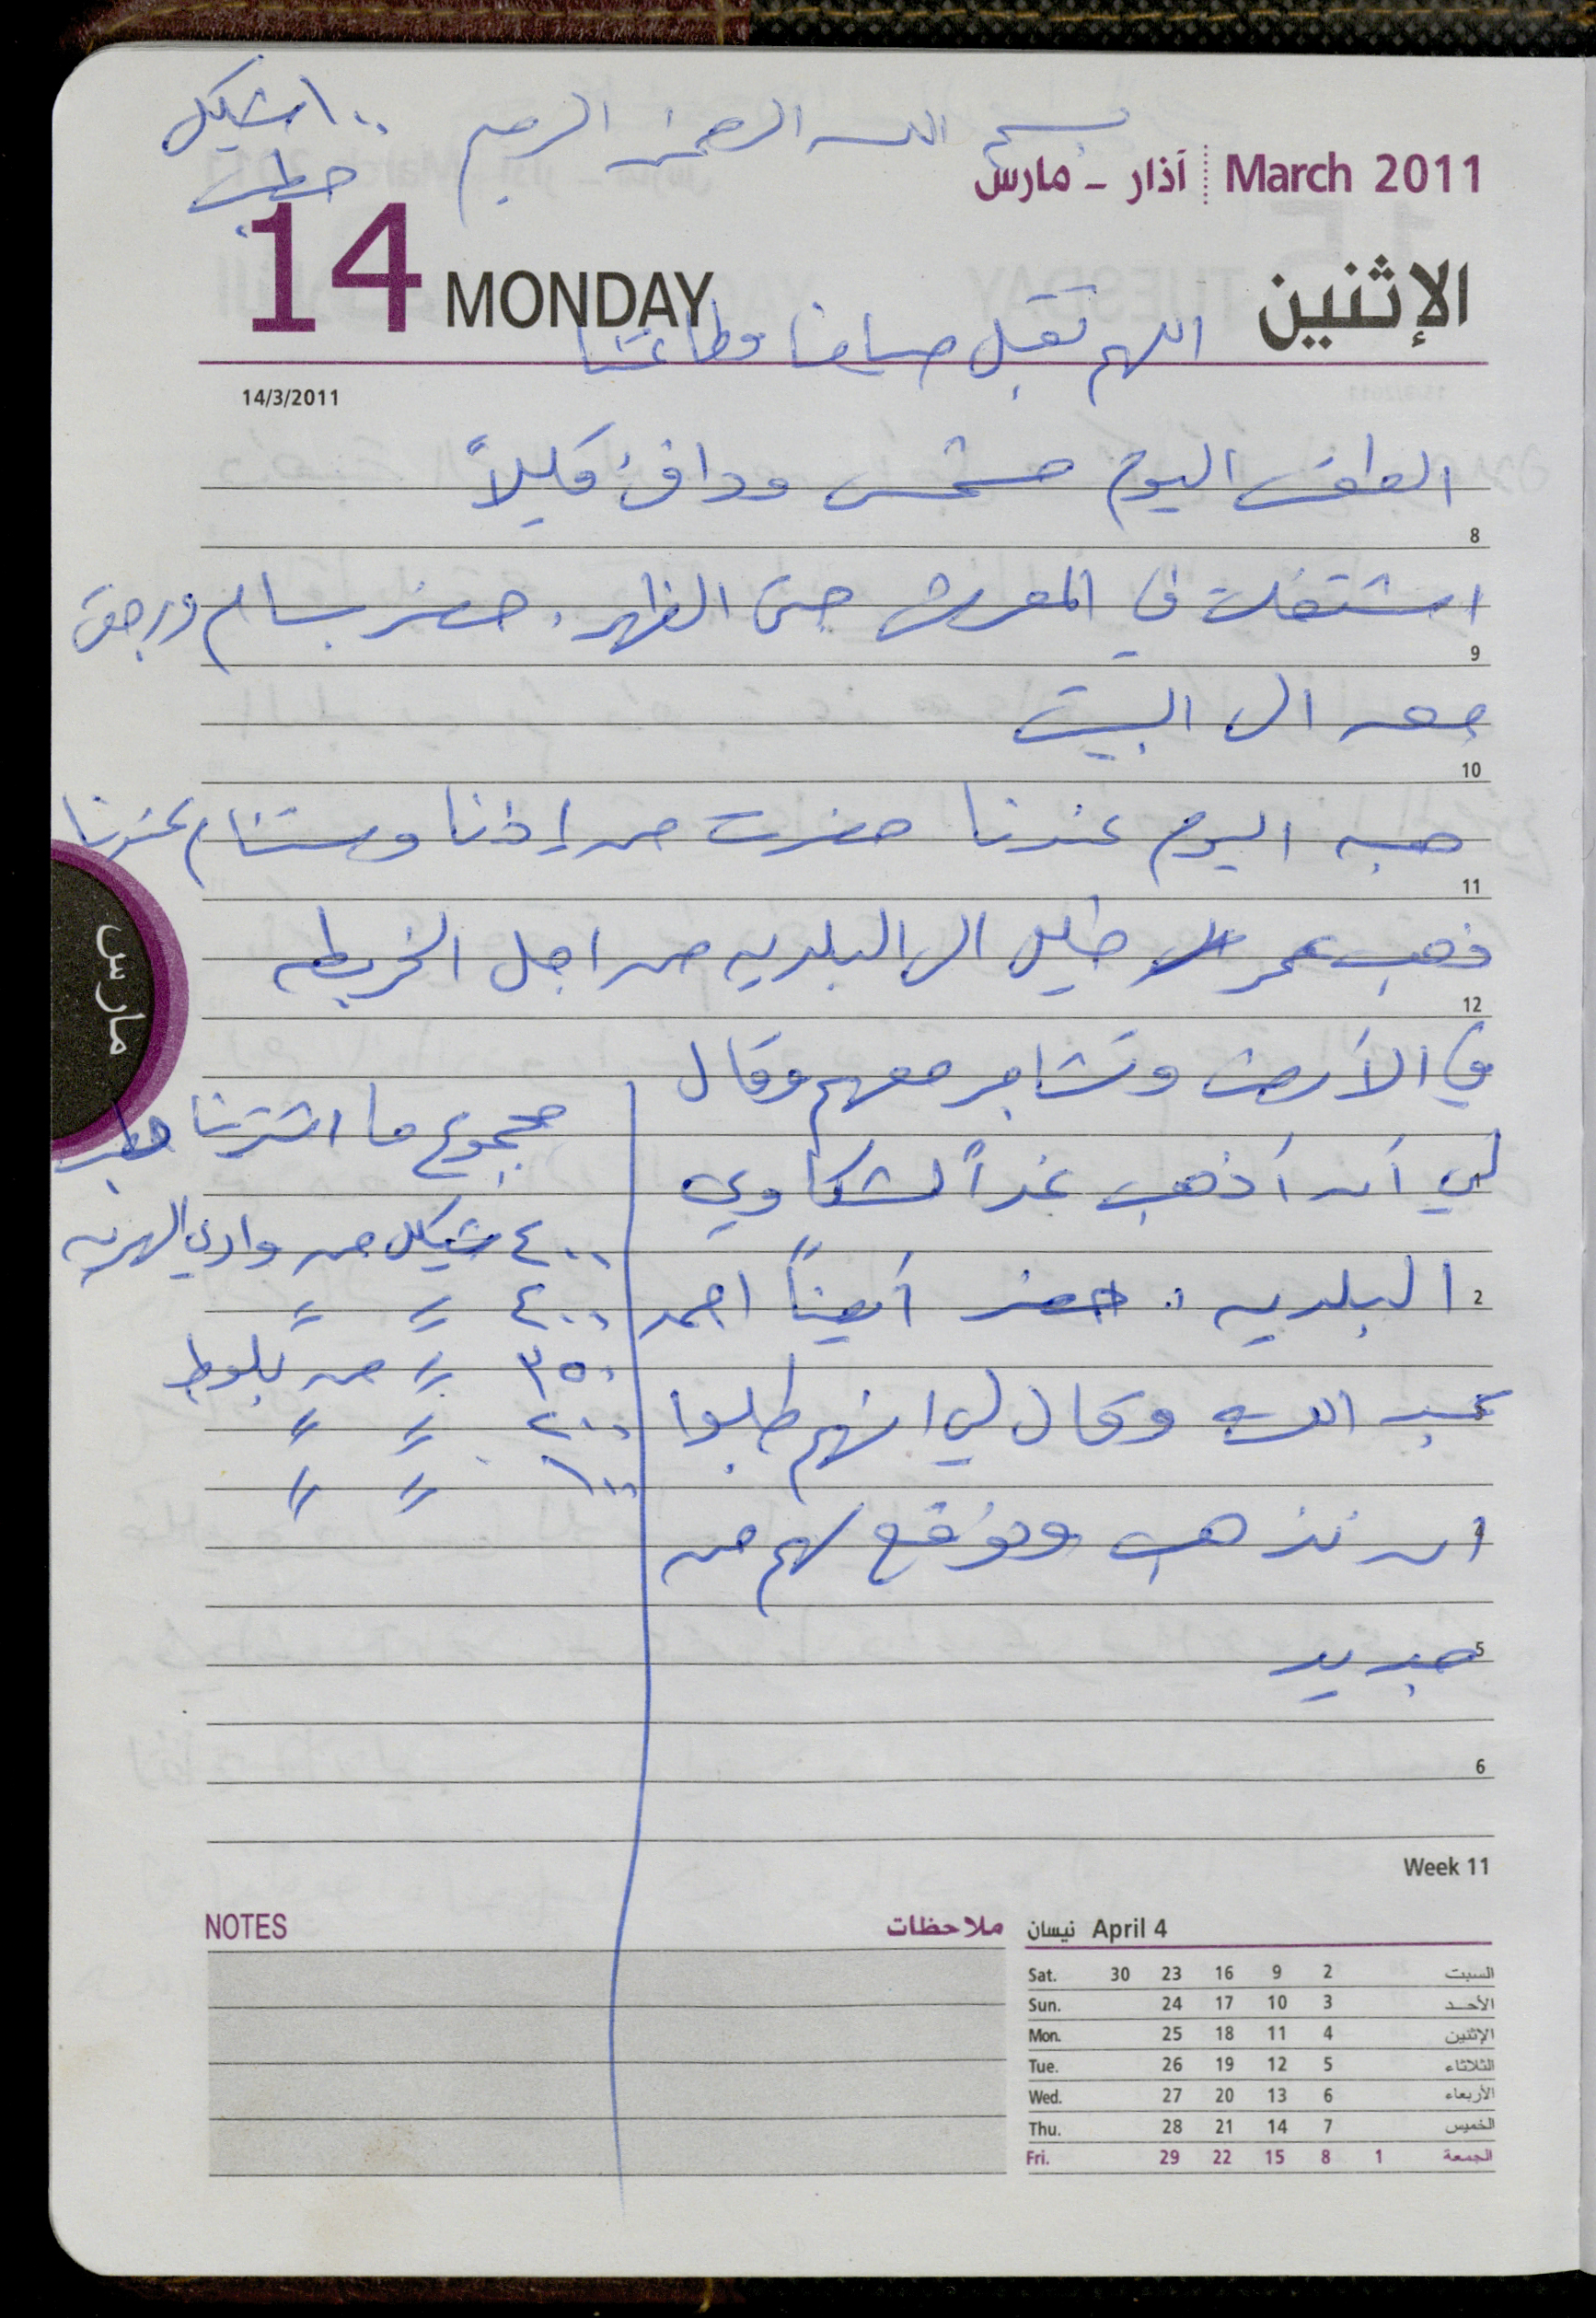 بسم الله الرحمن الرحيم
١٠٠ شيكل
حطب
March 2011 آذار - مارس
14 MONDAY الإثنين
اللهم تقبل صيامنا وطاعتنا
14/3/2011
الطقس اليوم مشمس ودافئ قليلاً
8
اشتغلت في المعرش حتى الظهر. حضر بسام ورجعت
9
معه الى البيت
10
هبه اليوم عندنا حضرت من إذنا وستنام عندنا
11
ذهب عمر خليل الى البلديه من اجل الخريطه
12
في الأرض وتشاجر معهم وقال
لي أن أذهب غداً لشكاوي
2
البلديه. حضر أيضاً احمد
عبد الله وقال لي انهم طلبوا
4
ان نذهب ونوقع لهم من
5
جديد
6
مجموع ما اشترينا حطب
٤٠٠ شيكل من وادي الهريه
٤٠٠ " "
٣٥٠ " من بلوط
٢٠٠ " "
١٠٠ " "
مارس
Week 11
NOTES ملاحظات
نيسان April 4
Sat. 30 23 16 9 2 السبت
Sun. 24 17 10 3 الأحد
Mon. 25 18 11 4 الإثنين
Tue. 26 19 12 5 الثلاثاء
Wed. 27 20 13 6 الأربعاء
Thu. 28 21 14 7 الخميس
Fri. 29 22 15 8 1 الجمعة